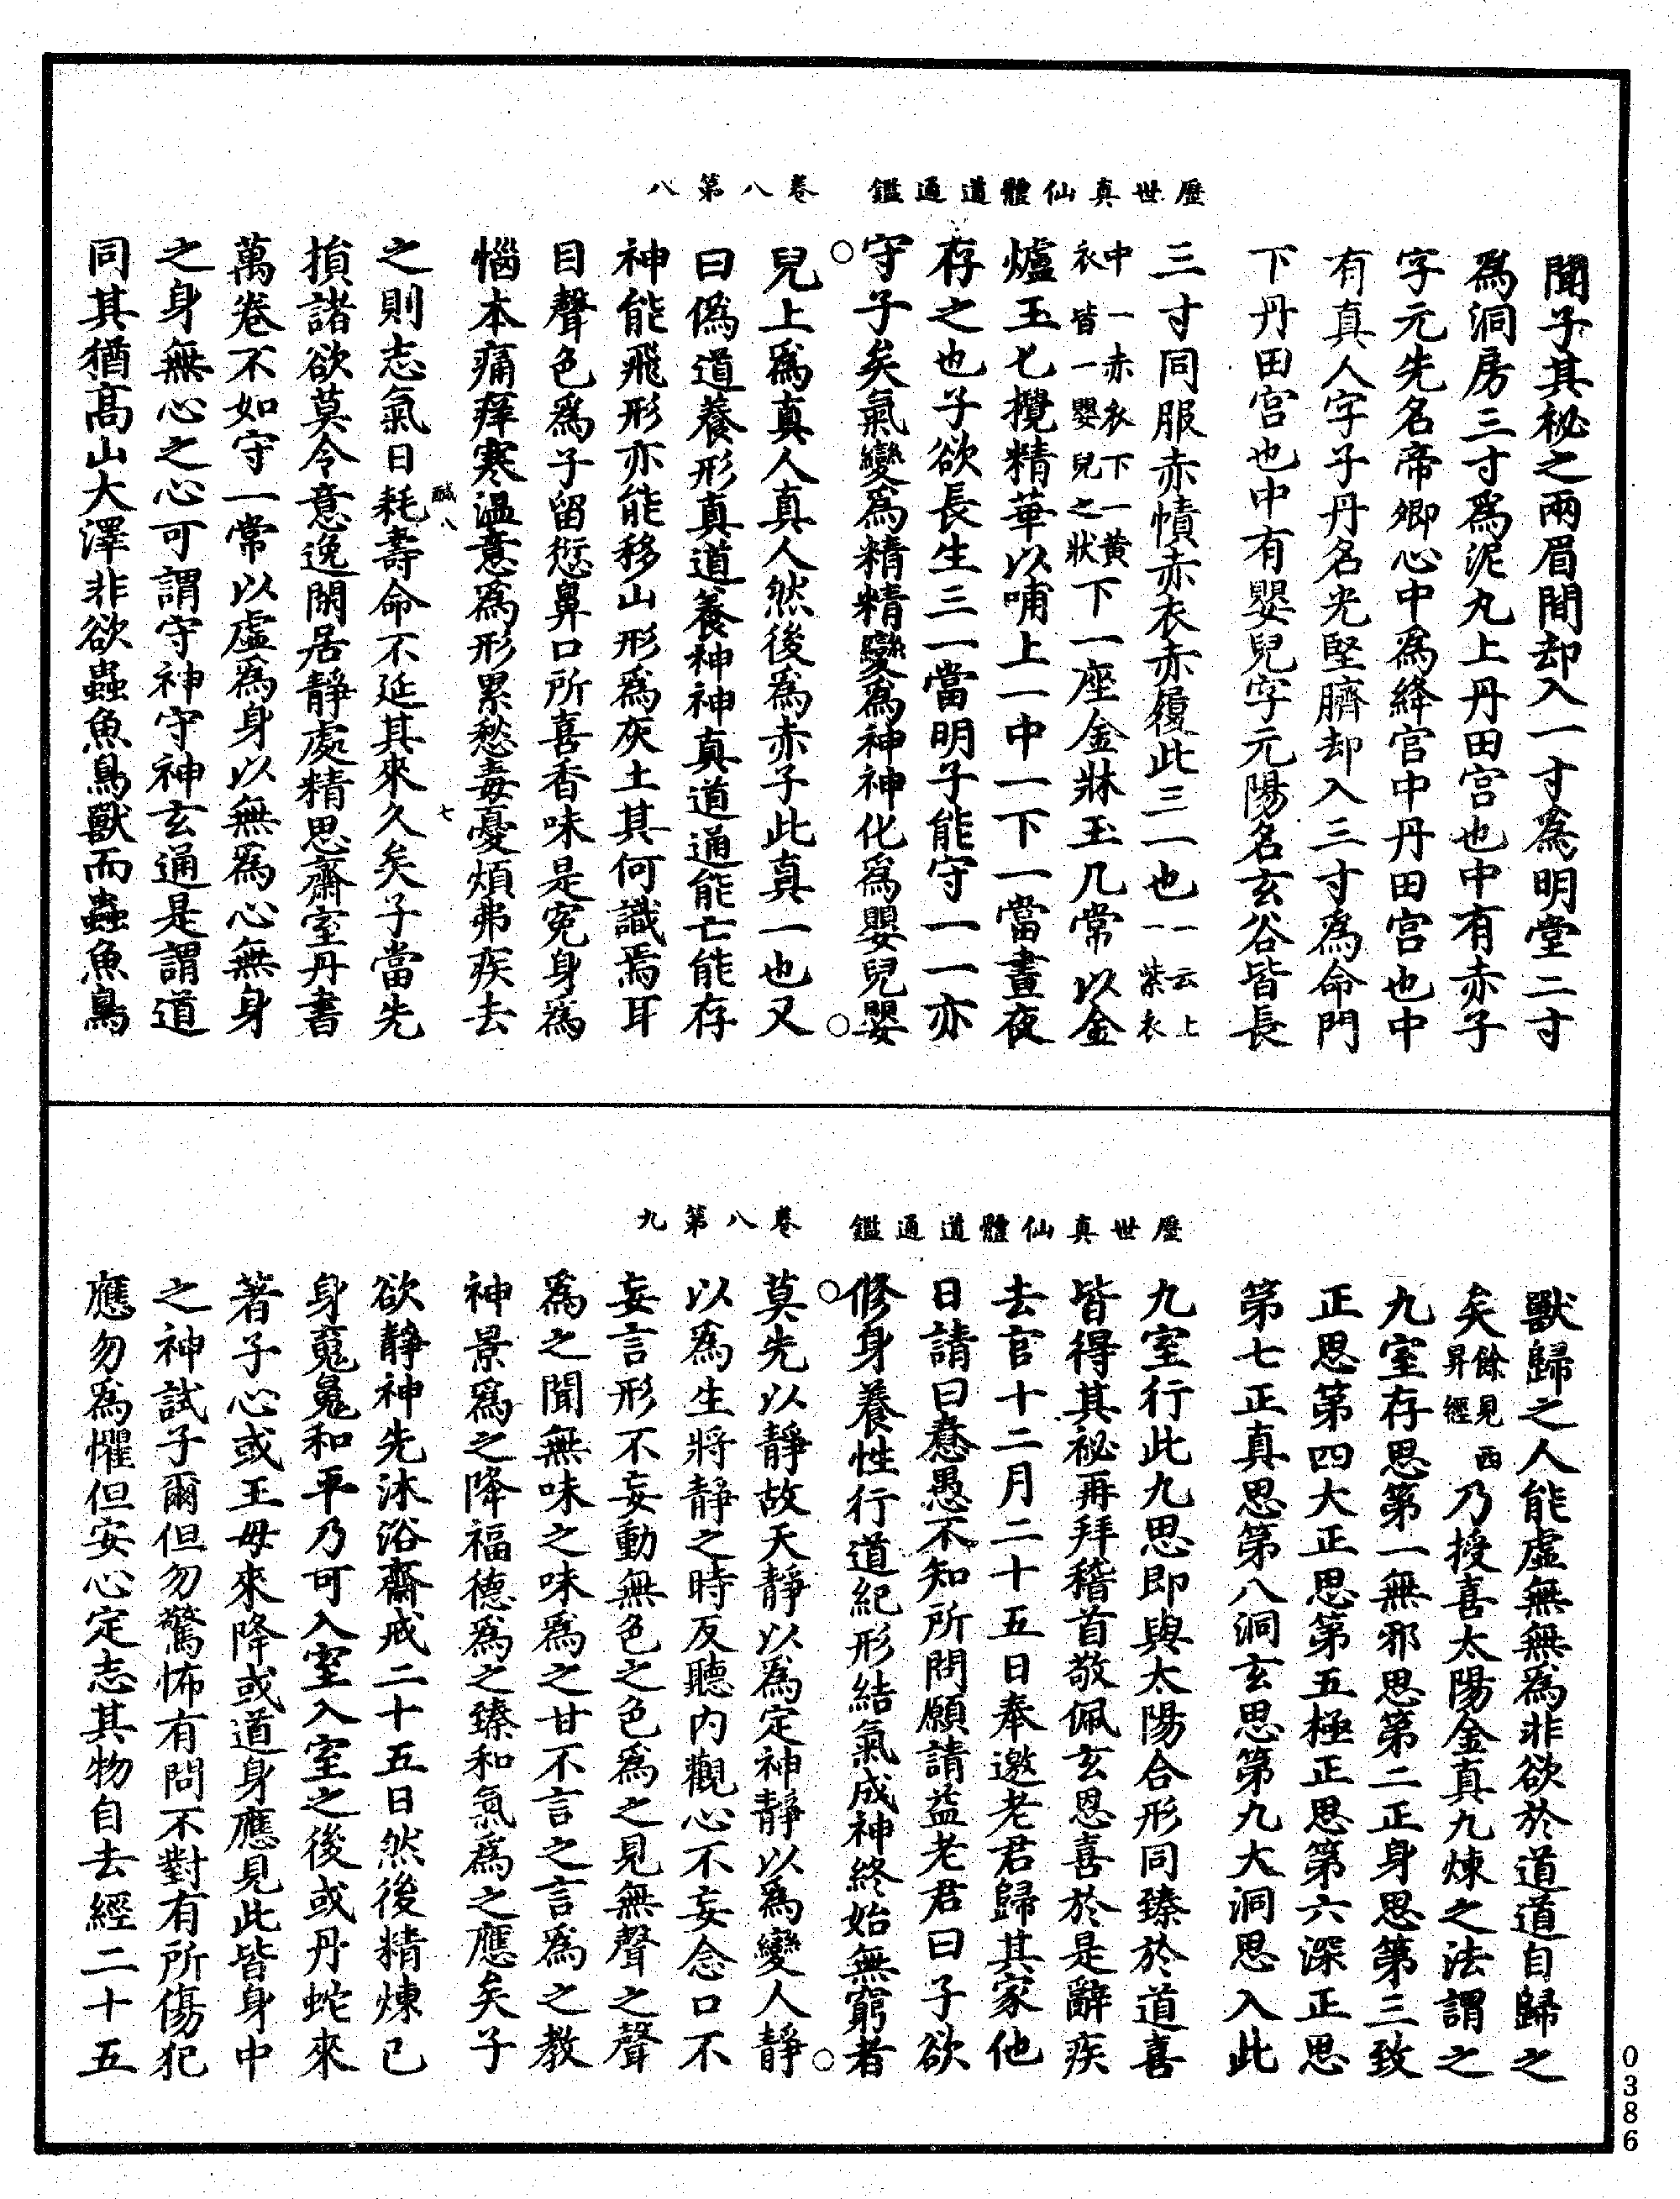 歷世真仙體道通鑑　卷八第八
聞子其祕之兩眉間却入一寸爲明堂二寸
爲洞房三寸爲泥丸上丹田宮也中有赤子
字元先名帝卿心中爲絳宮中丹田宮也中
有真人字子丹名光堅臍却入三寸爲命門
下丹田宮也中有嬰兒字元陽名玄谷皆長
三寸同服赤幘赤衣赤履此三一也一云上一紫衣
中一赤衣下一黃衣皆一嬰兒之狀下一座金牀玉几常以金
爐玉匕攪精華以哺上一中一下一當晝夜
存之也子欲長生三一當明子能守一一亦
守子矣氣變爲精精變爲神神化爲嬰兒嬰
兒上爲真人真人然後爲赤子此真一也又
曰僞道養形真道養神神真道通能亡能存
神能飛形亦能移山形爲灰土其何識焉耳
目聲色爲子留愆鼻口所喜香味是寃身爲
惱本痛痒寒溫意爲形累愁毒憂煩弗疾去
之則志氣日耗壽命不延其來久矣子當先
損諸欲莫令意逸閑居靜處精思齋室丹書
萬卷不如守一常以虛爲身以無爲心無身
之身無心之心可謂守神守神玄通是謂道
同其猶高山大澤非欲蟲魚鳥獸而蟲魚鳥
鹹八
七
歷世真仙體道通鑑　卷八第九
獸歸之人能虛無無爲非欲於道道自歸之
矣餘見西昇經乃授喜太陽金真九煉之法謂之
九室存思第一無邪思第二正身思第三致
正思第四大正思第五極正思第六深正思
第七正真思第八洞玄思第九大洞思入此
九室行此九思即與太陽合形同臻於道喜
皆得其祕再拜稽首敬佩玄恩喜於是辭疾
去官十二月二十五日奉邀老君歸其家他
日請曰惷愚不知所問願請益老君曰子欲
修身養性行道紀形結氣成神終始無窮者
莫先以靜故天靜以爲定神靜以爲變人靜
以爲生將靜之時反聽內觀心不妄念口不
妄言形不妄動無色之色爲之見無聲之聲
爲之聞無味之味爲之甘不言之言爲之教
神景爲之降福德爲之臻和氣爲之應矣子
欲靜神先沐浴齋戒二十五日然後精煉已
身䰟䰟和平乃可入室入室之後或丹蛇來
著子心或王母來降或道身應見此皆身中
之神試子爾但勿驚怖有問不對有所傷犯
應勿爲懼但安心定志其物自去經二十五
0386